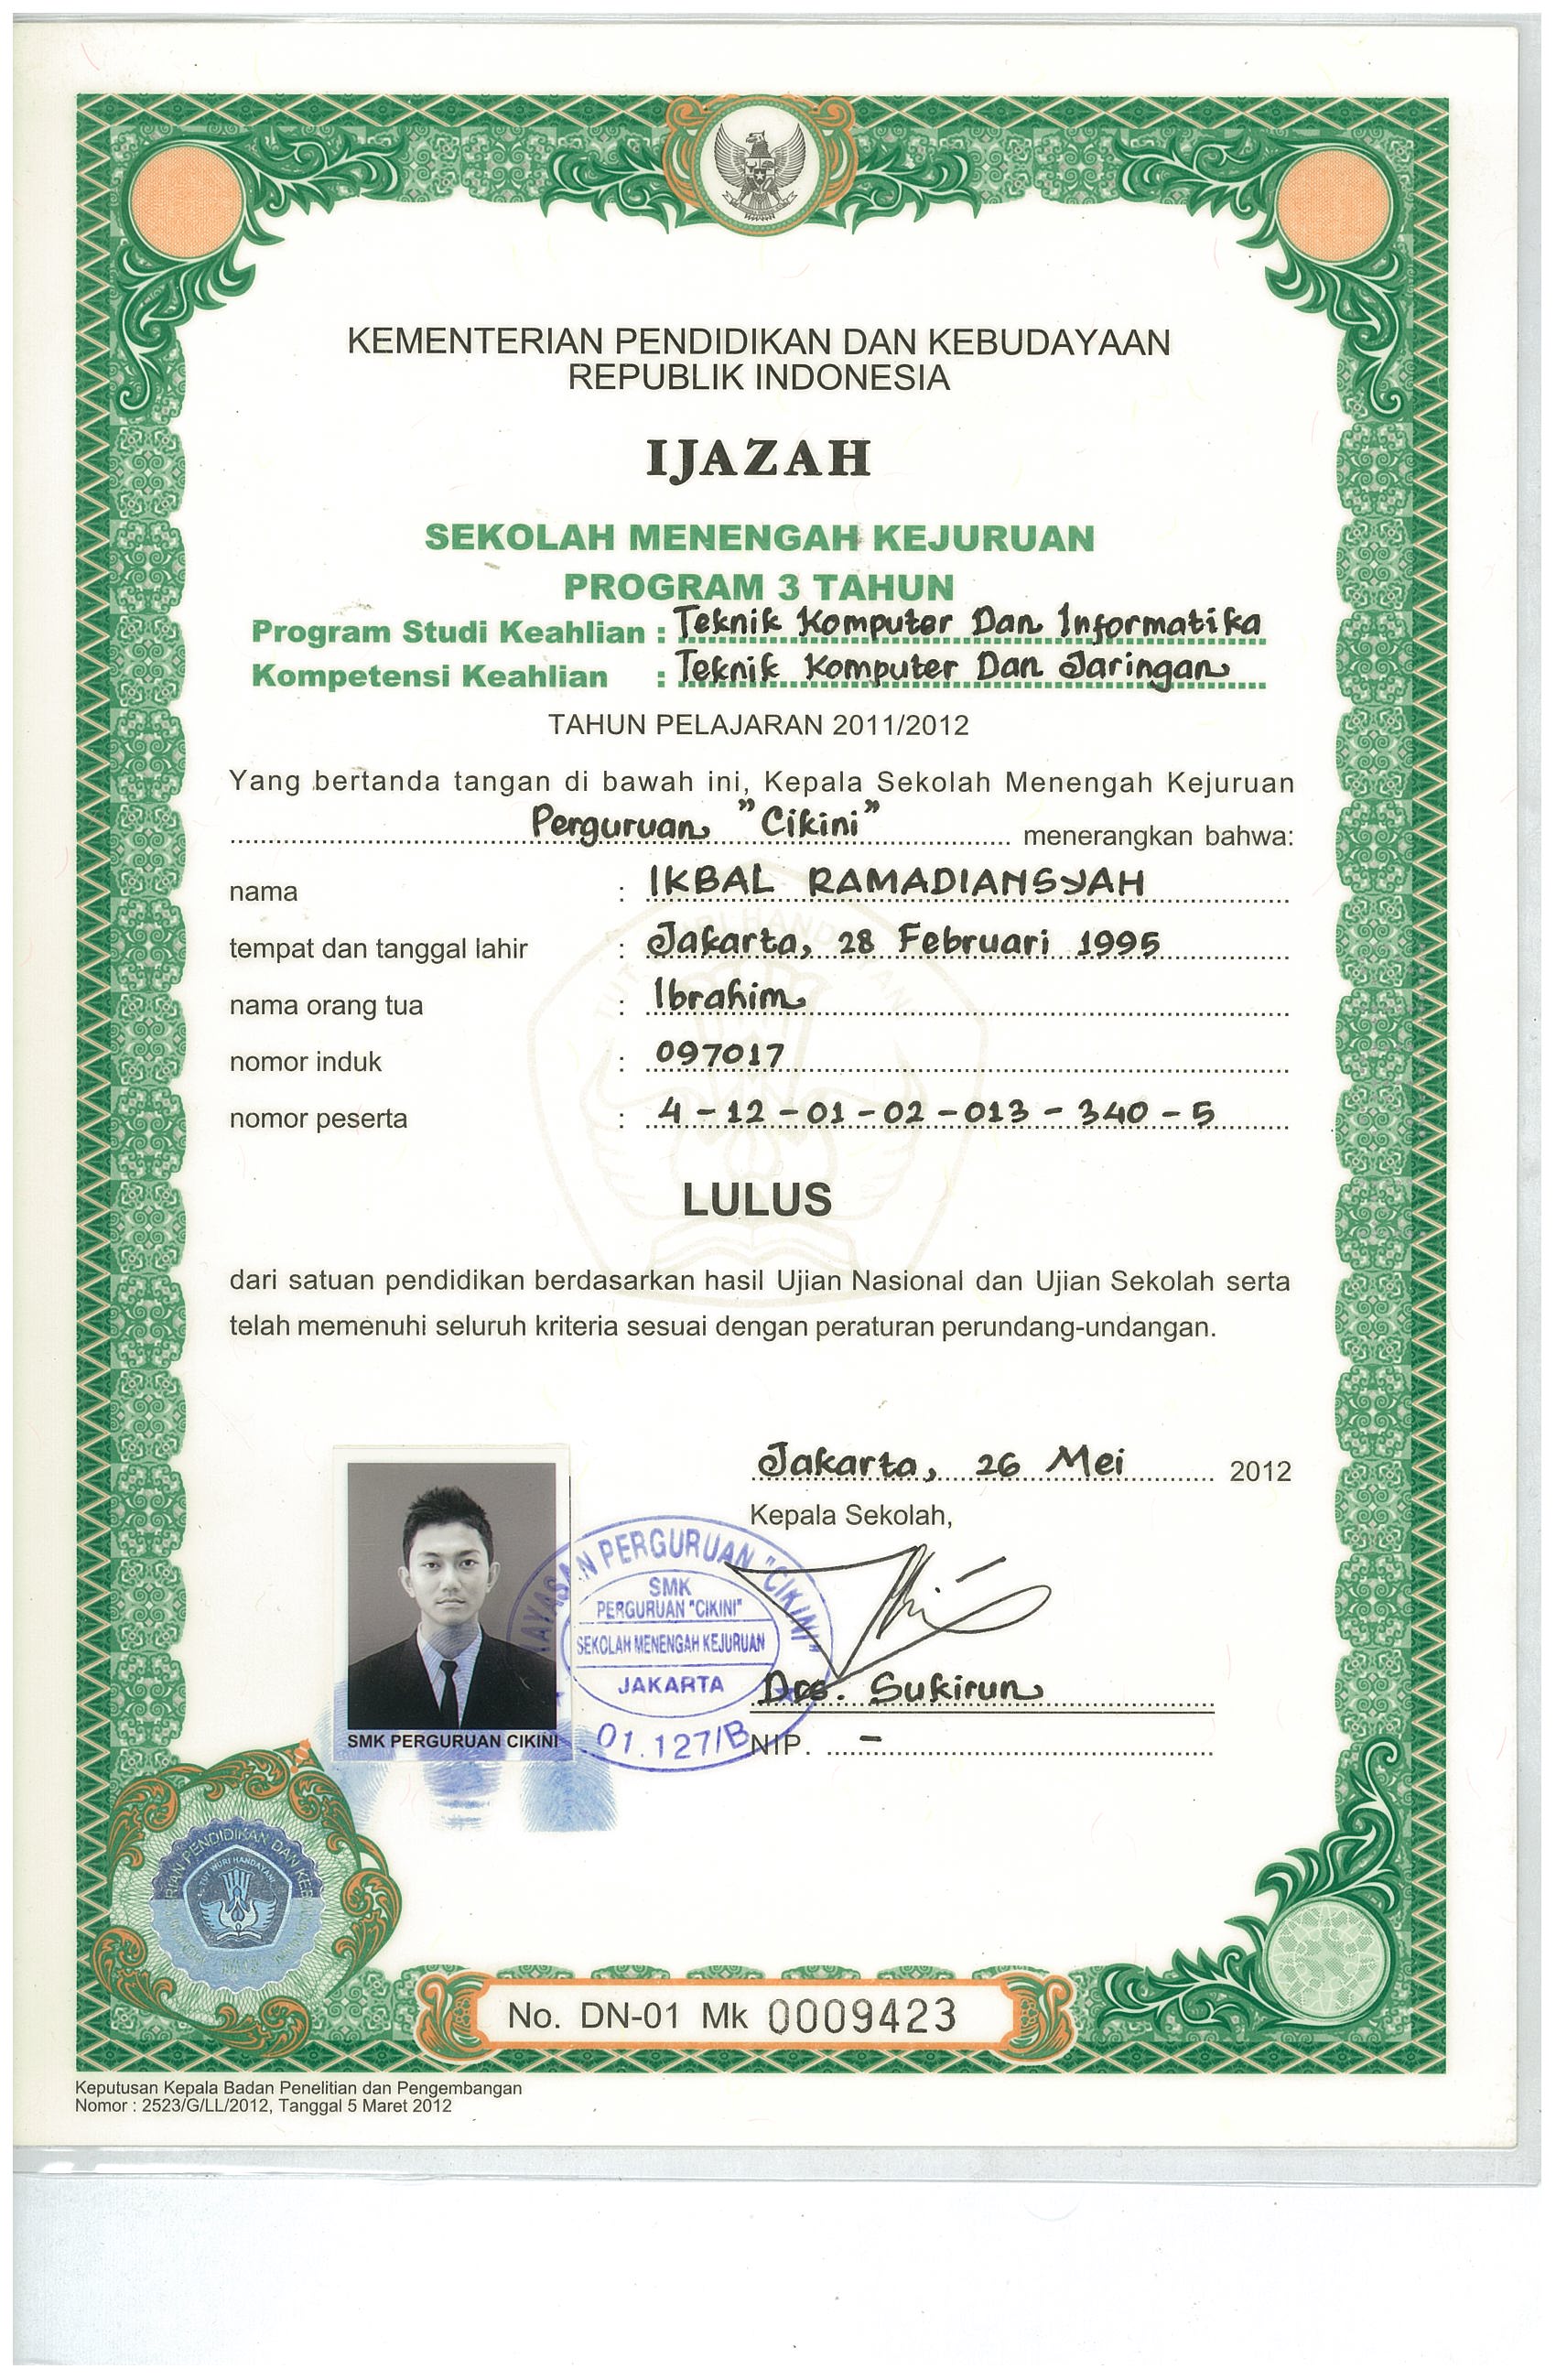 KEMENTERIAN PENDIDIKAN DAN KEBUDAYAAN
REPUBLIK INDONESIA
IJAZAH
SEKOLAH MENENGAH KEJURUAN
PROGRAM 3 TAHUN
Program Studi Keahlian : Teknik Komputer Dan Informatika
Kompetensi Keahlian : Teknik Komputer Dan Jaringan
TAHUN PELAJARAN 2011/2012
Yang bertanda tangan di bawah ini, Kepala Sekolah Menengah Kejuruan
Perguruan "Cikini" menerangkan bahwa:
nama : IKBAL RAMADIANSYAH
tempat dan tanggal lahir : Jakarta, 28 Februari 1995
nama orang tua : Ibrahim
nomor induk : 097017
nomor peserta : 4 - 12 - 01 - 02 - 013 - 340 - 5
LULUS
dari satuan pendidikan berdasarkan hasil Ujian Nasional dan Ujian Sekolah serta
telah memenuhi seluruh kriteria sesuai dengan peraturan perundang-undangan.
Jakarta, 26 Mei 2012
Kepala Sekolah,
YAYASAN PERGURUAN "CIKINI"
SMK
PERGURUAN "CIKINI"
SEKOLAH MENENGAH KEJURUAN
JAKARTA
01.127/B
Drs. Sukirun
NIP. -
SMK PERGURUAN CIKINI
PENDIDIKAN DAN
TUT WURI HANDAYANI
No. DN-01 Mk 0009423
Keputusan Kepala Badan Penelitian dan Pengembangan
Nomor : 2523/G/LL/2012, Tanggal 5 Maret 2012